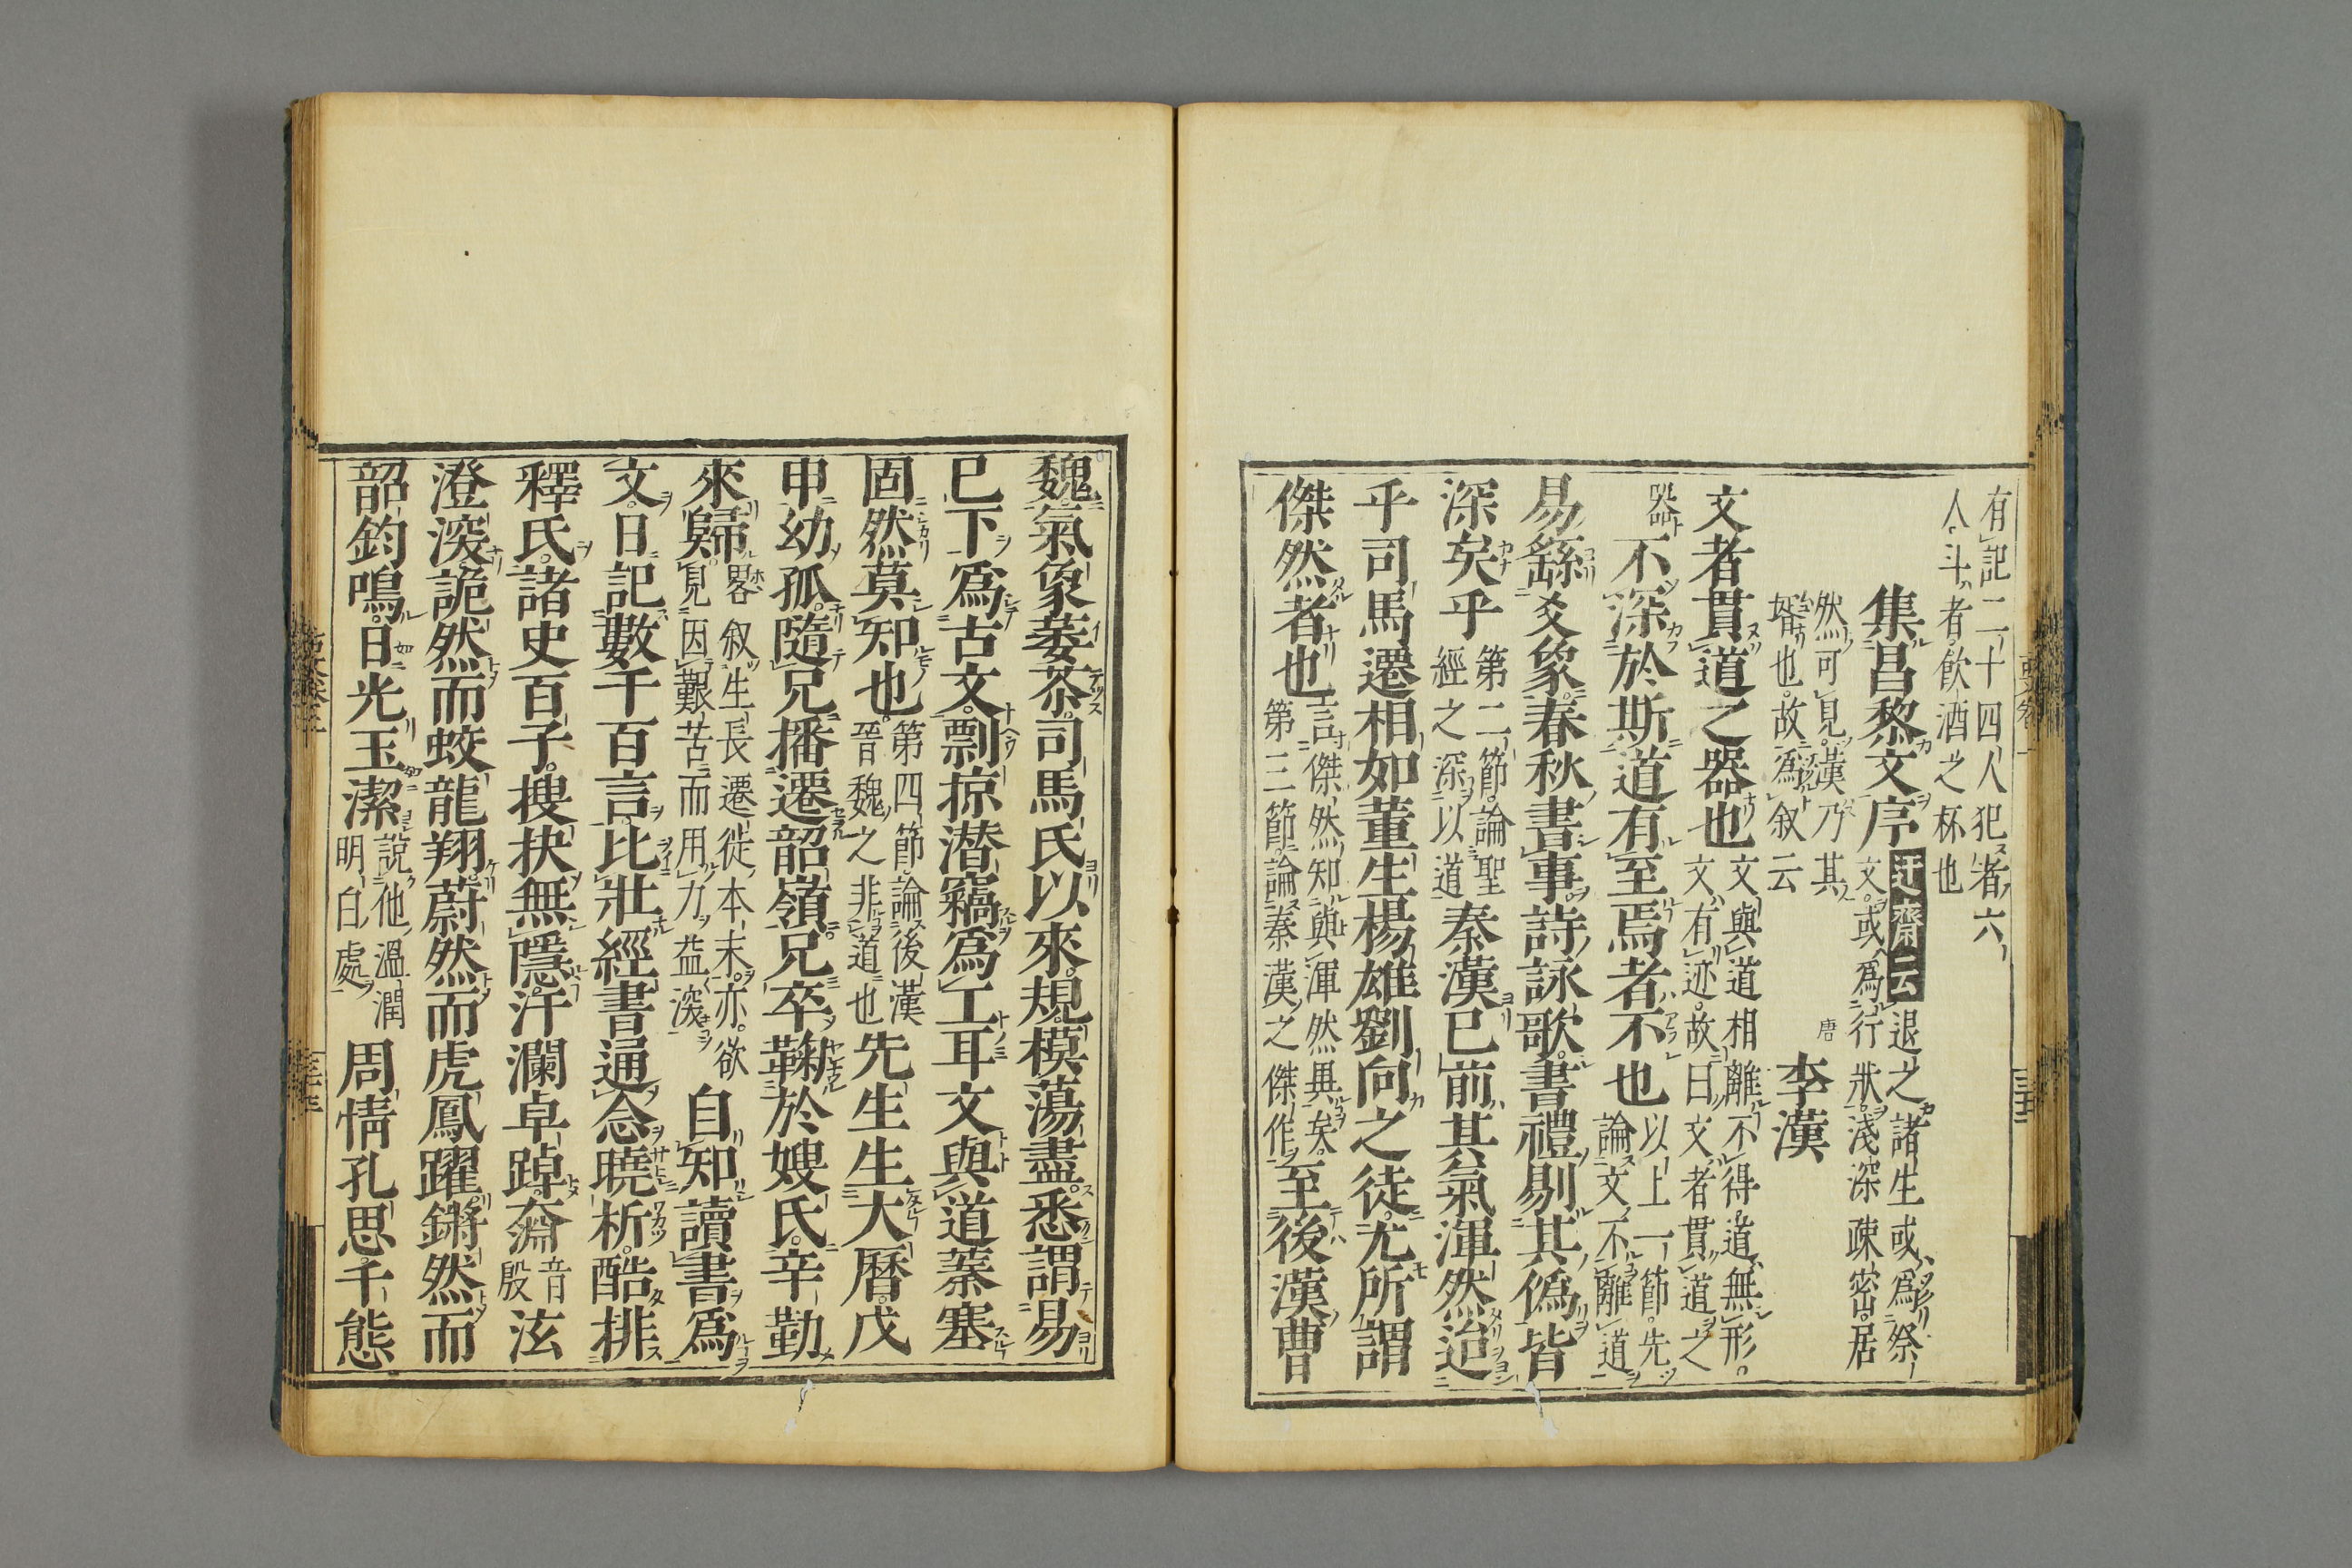 有記二十四人犯者六
人斗者飲酒之杯也
集昌黎文序
迂齋云退之諸生或爲祭
文或爲行狀淺深疎密居
然可見漢乃其
壻也故爲叙云
唐 李漢
文者貫道之器也
文與道相離不得道無形
文有迹故曰文者貫道之
器
不深於斯道有至焉者不也
以上一節先
論文不離道
易繇爻象春秋書事詩詠歌書禮剔其僞皆
深矣乎
第二節論聖
經之深以道
秦漢已前其氣渾然迨
乎司馬遷相如董生楊雄劉向之徒尤所謂
傑然者也
言傑然知與渾然異矣
第三節論秦漢之傑作
至後漢曹
魏氣象萎苶司馬氏以來規模蕩盡悉謂易
已下爲古文剽掠潜竊爲工耳文與道蓁塞
固然莫知也
第四節論後漢
晉魏之非道也
先生生大曆戊
申幼孤隨兄播遷韶嶺兄卒鞠於嫂氏辛勤
來歸
畧叙生長遷徙本末亦欲
見因艱苦而用力益深
自知讀書爲
文日記數千百言比壯經書通念曉析酷排
釋氏諸史百子搜抉無隱汗瀾卓踔奫
音
殷
泫
澄深詭然而蛟龍翔蔚然而虎鳳躍鏘然而
韶鈞鳴日光玉潔
說他溫潤
明白處
周情孔思千態